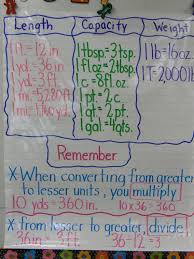 Length Capacity Weight
1ft.=12in. 1tbsp=3tsp. 1lb=16oz.
1yd.=36in. 1floz=2tbsp. 1T=2,000lb
1yd.=3ft. 1c.=8floz.
1mi.=5,280ft 1pt.=2c.
1qt.=2pt.
1gal.=4qts.
Remember
X When converting from greater
to lesser units, you multiply
10 yds=360in. 10x36=360
X from lesser to greater, divide
36in.=3ft. 36÷12=3